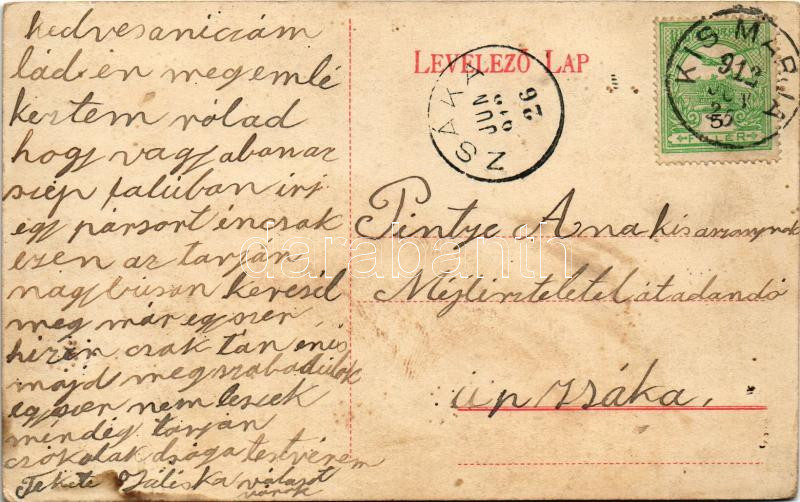 kedvesaniczám
lád én megemlé
keztem rólad
hogy vagy abanaz
szép falúban irj
egy pársort éncsak
ezen az tarján
nagybúsan keresél
meg már egyszer
hizen csak tán énis
majd megszabadúlok
egyszer nem leszek
mindég tarján
csókolak drága testvérem
Fekete Júliska választ
várok
LEVELEZŐ LAP
ZSÁKA
916 JUN
26
KIS MARJA
912
FILLÉR
Pintye Ana kisaszonynak
Méjtiszteletel átadandó
úp zsáka.
darabanth